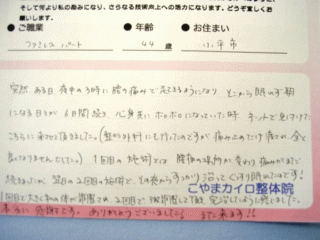 そして何より私の励みになり、さらなる技術向上への活力になります。どうぞ宜しく
お願いします。
●ご職業 ●年齢 ●お住まい
パート 44 歳 小平市
突然ある日 夜中の3時に腰の痛みで 起きるようになり そこから眠れず 朝
になる日々が 6日間続き 心身共に ボロボロになっていた時 ネットで見つけた
こちらに 来させて頂きました。(整形外科にも行ったのですが 痛み止めだけ 全く
良くなりませんでした。) 1回目の施術では 腰痛の場所が変わり 痛みがまだ
続きましたが 翌日の2回目の施術で、その夜からすっかり治って ぐっすり眠れたのです!!
こやまカイロ整体院
1回目で大きく私の体が
本当に 感謝です。ありがとうございました! また 来ます!!